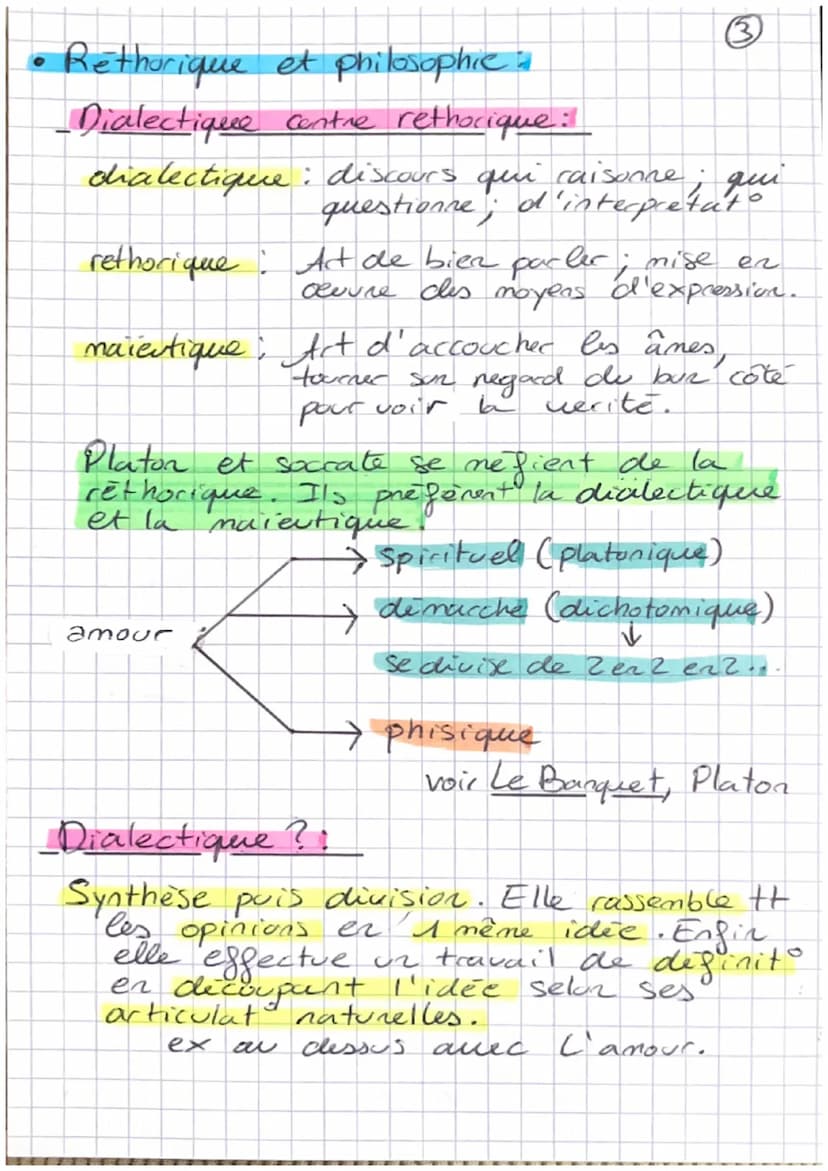 3
• Réthorique et philosophie :
- Dialectique contre rethorique :
dialectique : discours qui raisonne ; qui
questionne ; d'interpretat°
rethorique : Art de bien parler ; mise en
œuvre des moyens d'expression.
maïeutique : Art d'accoucher les âmes,
tourner son regard du bon côté
pour voir la verité.
Platon et socrate se méfient de la
réthorique. Ils préfèrent la dialectique
et la maïeutique.
spirituel (platonique)
démarche (dichotomique)
amour
↓
se divise de 2 en 2 en 2...
phisique
voir Le Banquet, Platon
- Dialectique ? :
Synthèse puis division. Elle rassemble tt
les opinions en 1 même idée. Enfin
elle effectue un travail de définit°
en découpant l'idée selon ses
articulat° naturelles.
ex au dessus avec L'amour.